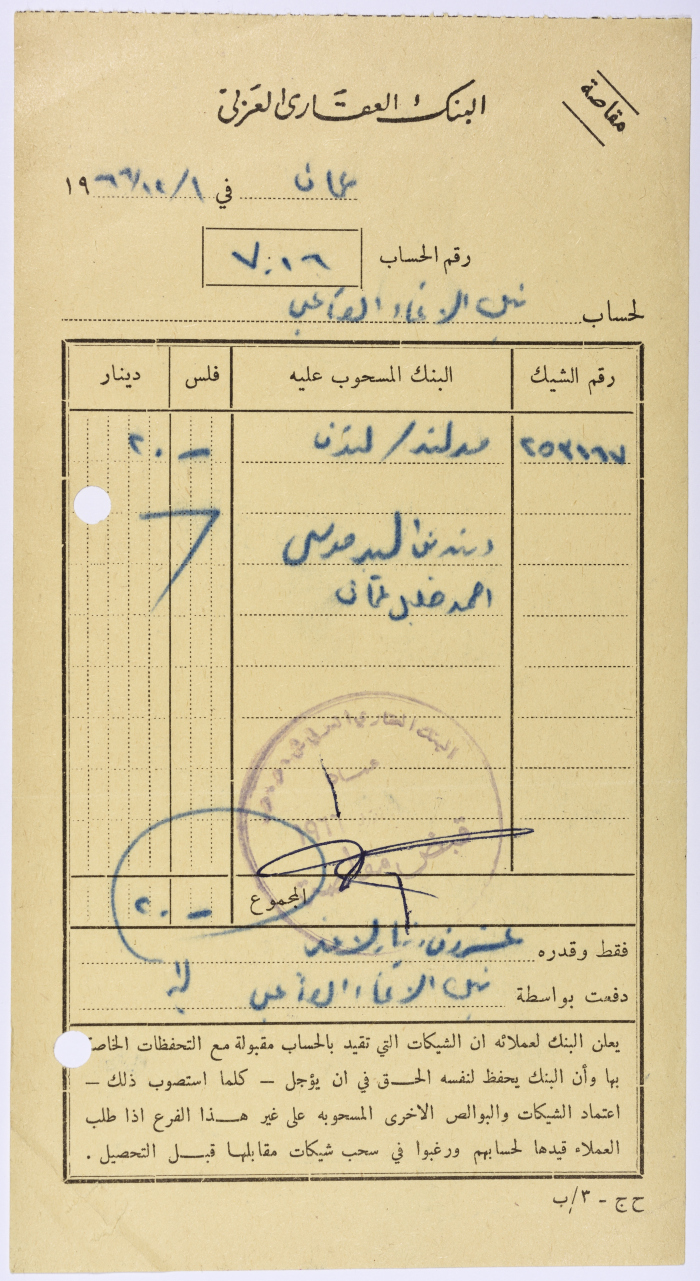 مقاصة
البنك العقاري العربي
عمان في ١ / ١٢ / ١٩٦٦
رقم الحساب ٧٠١٦
لحساب
رقم الشيك البنك المسحوب عليه فلس دينار
لندن - ٢٠٠
احمد خليل عثمان
البنك العقاري العربي
عمان
قبض
المجموع - ٢٠٠
فقط وقدره عشرون دينار لا غير
دفعت بواسطة
يعلن البنك لعملائه ان الشيكات التي تقيد بالحساب مقبولة مع التحفظات الخاصة
بها وأن البنك يحفظ لنفسه الحق في ان يؤجل – كلما استصوب ذلك –
اعتماد الشيكات والبوالص الاخرى المسحوبه على غير هذا الفرع اذا طلب
العملاء قيدها لحسابهم ورغبوا في سحب شيكات مقابلها قبل التحصيل .
ح ج - ٣/ب